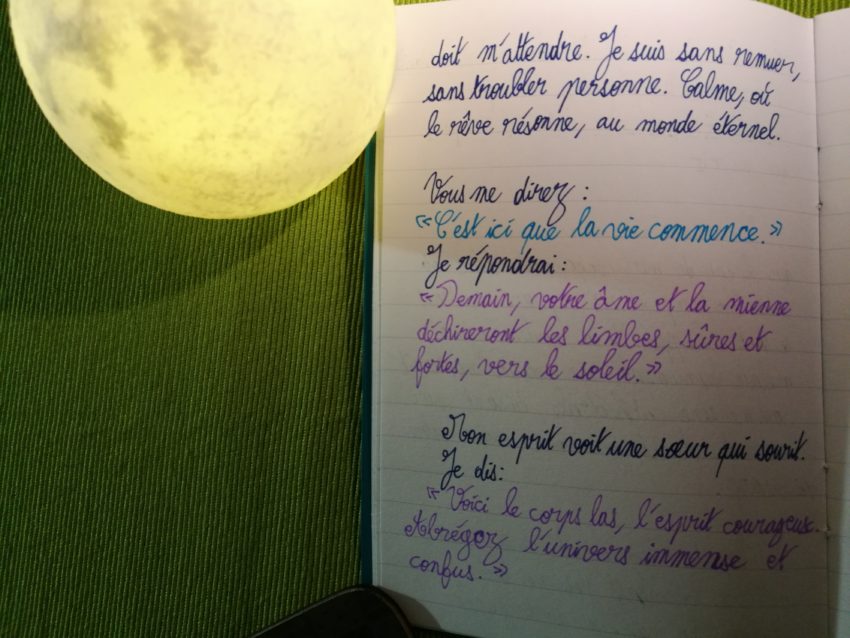 doit m'attendre. Je suis sans remuer,
sans troubler personne. Calme, où
le rêve résonne, au monde éternel.
Vous me direz :
« C'est ici que la vie commence. »
Je répondrai :
« Demain, votre âme et la mienne
déchireront les limbes, sûres et
fortes, vers le soleil. »
Mon esprit voit une sœur qui sourit.
Je dis :
« Voici le corps las, l'esprit courageux.
Abrégez l'univers immense et
confus. »